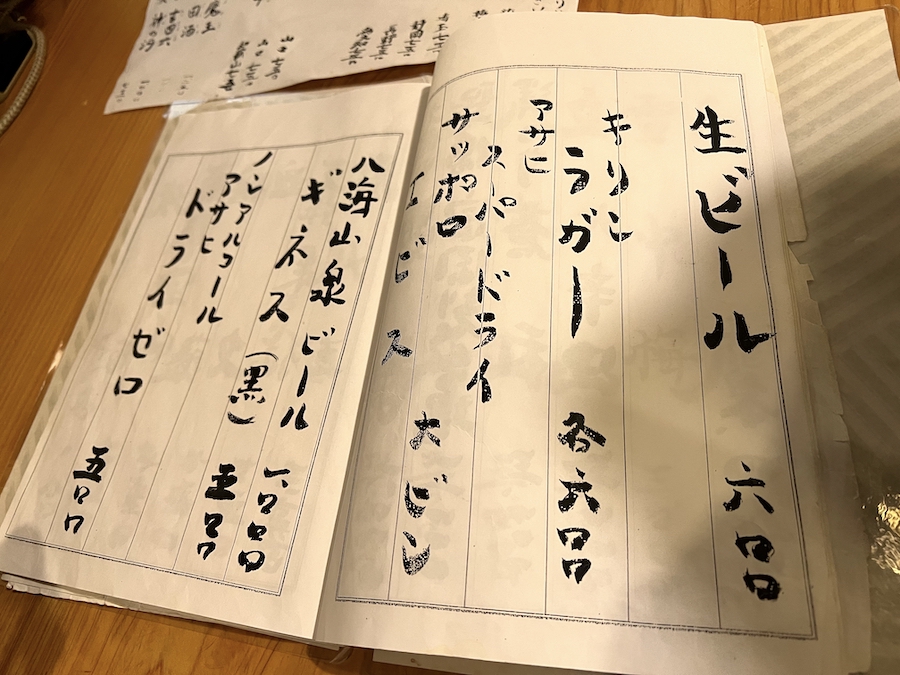 生ビール 六〇〇
キリン
ラガー 各六〇〇
アサヒ
スーパードライ
サッポロ
エビス 大ビン
八海山泉ビール 一〇〇〇
ギネス（黒） 五〇〇
ノンアルコール
アサヒ
ドライゼロ 五〇〇
魔王
田酒
吉四六
神の河